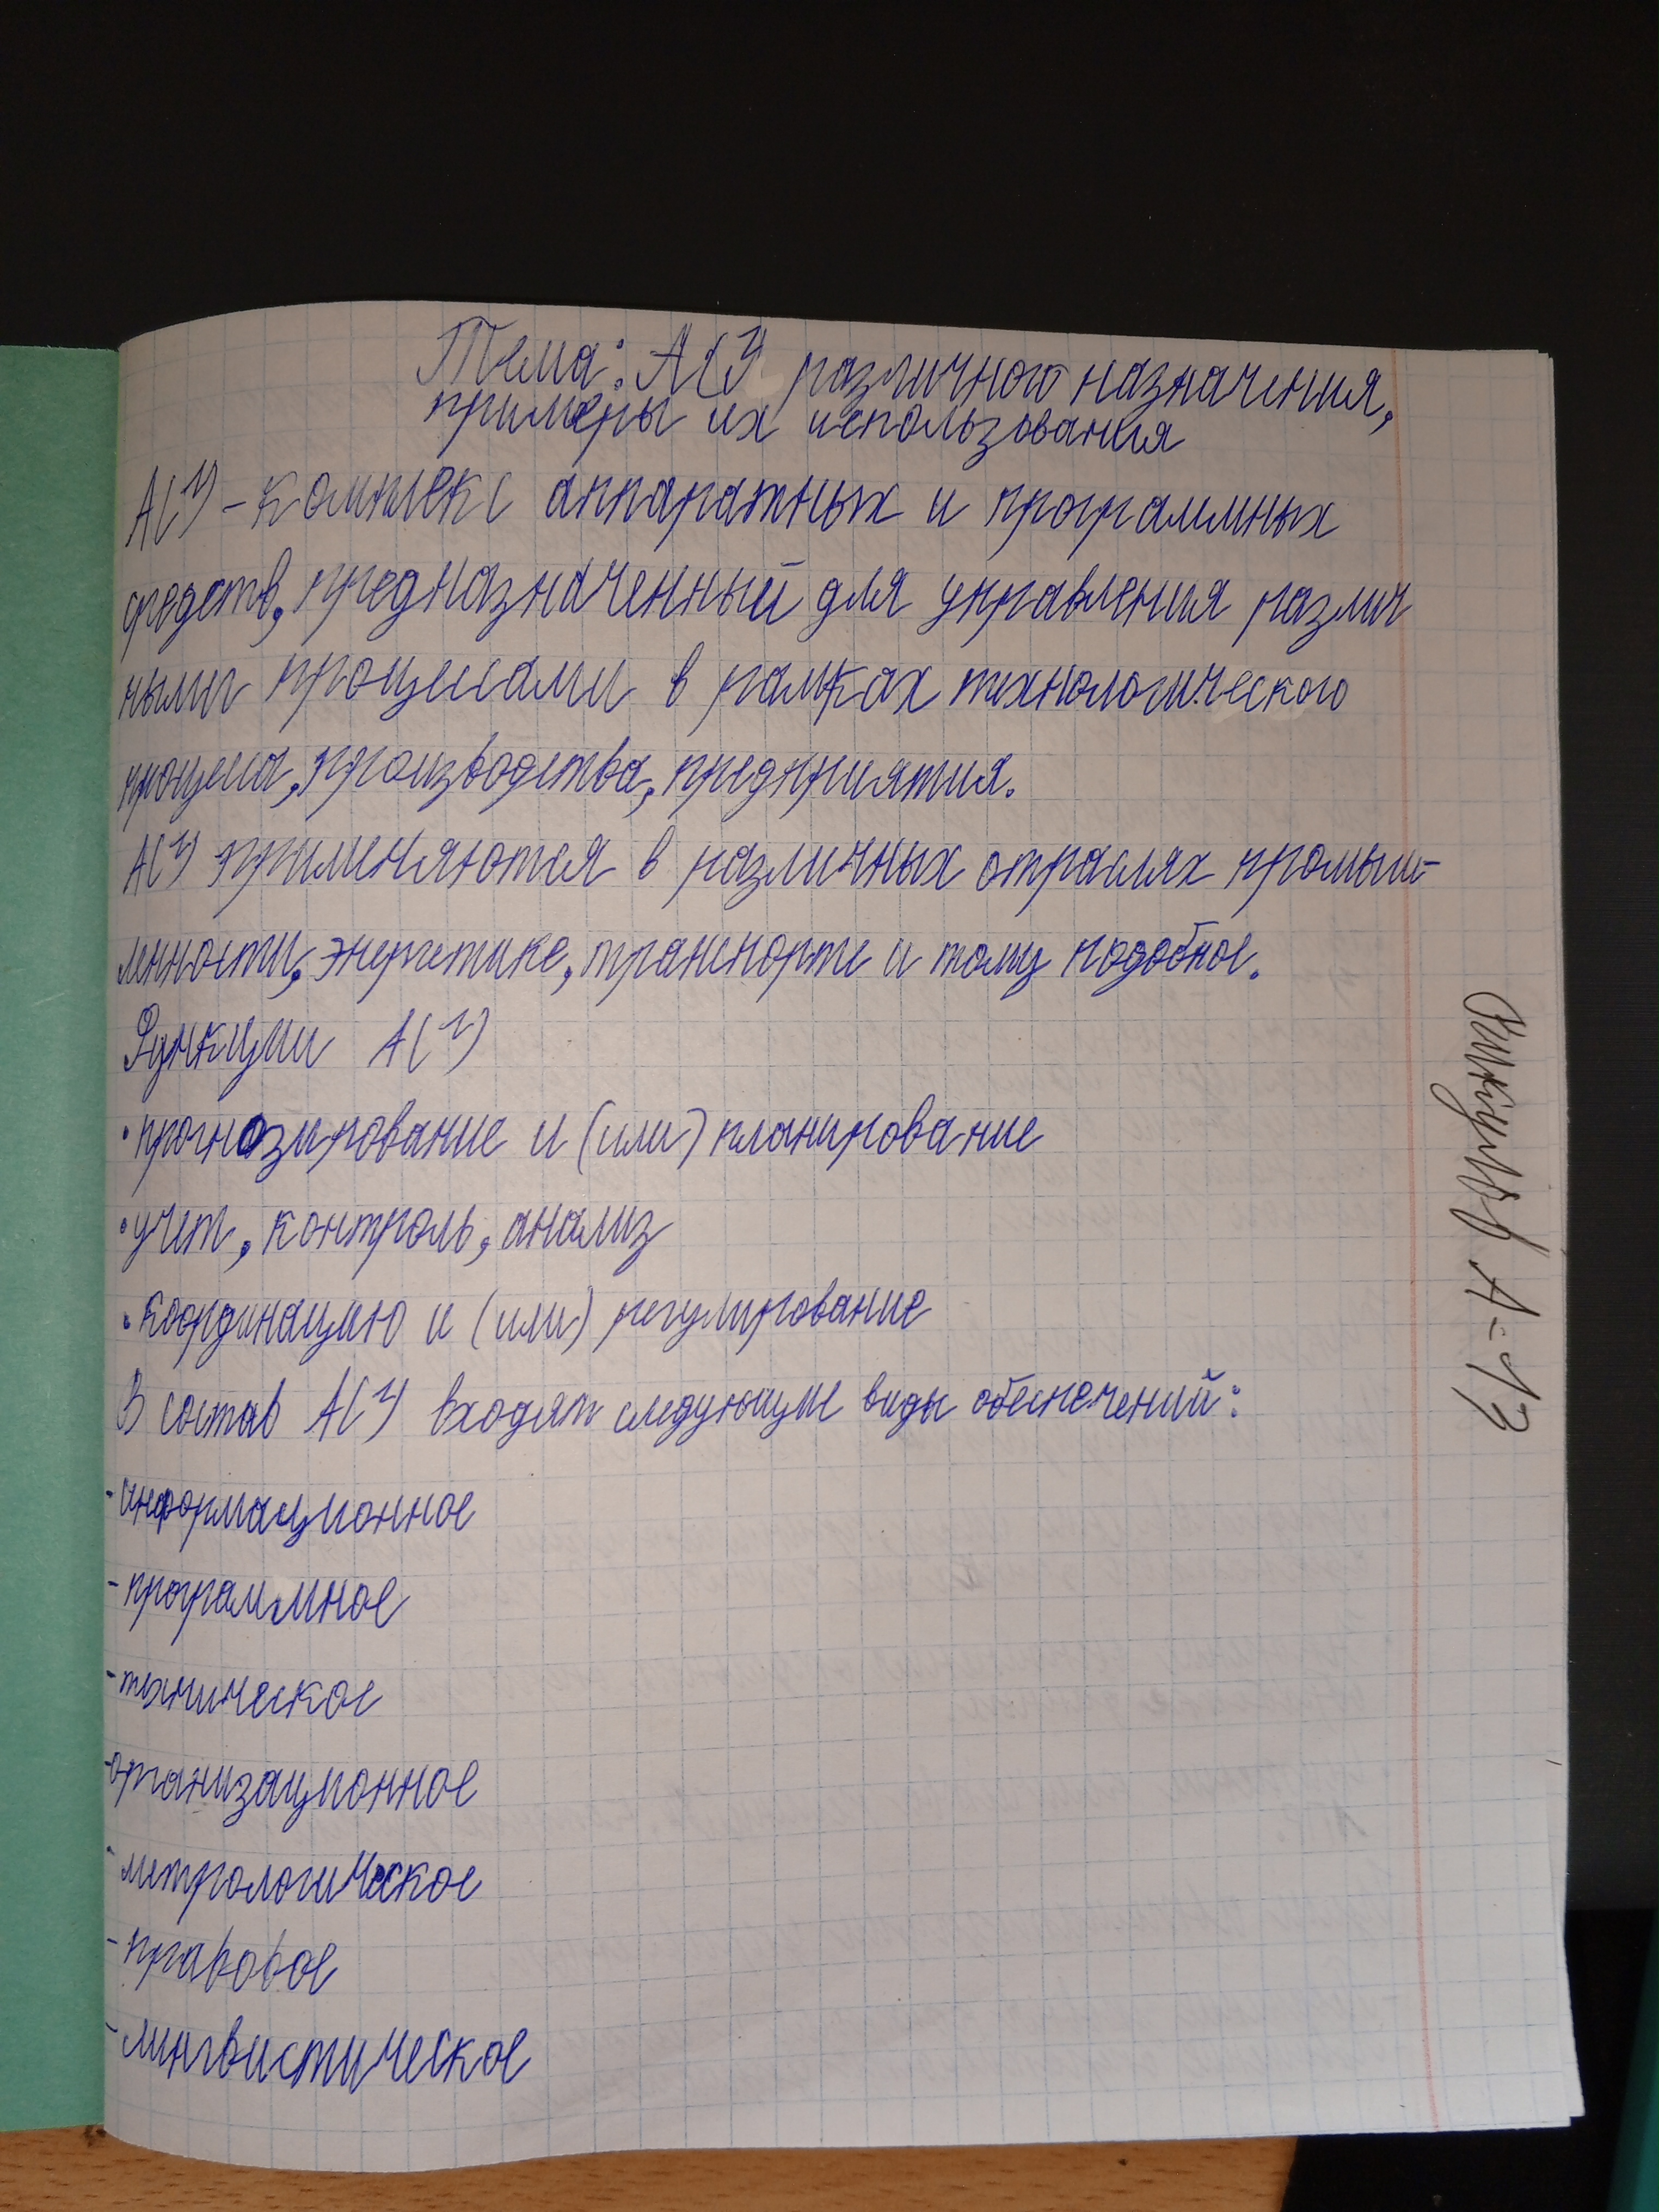 Тема: АСУ различного назначения,
примеры их использования
АСУ - комплекс аппаратных и программных
средств, предназначенный для управления различ
ными процессами в рамках технологического
процесса, производства, предприятия.
АСУ применяются в различных отраслях промыш-
ленности, энергетике, транспорте и тому подобное.
Функции АСУ
• прогнозирование и (или) планирование
• учет, контроль, анализ
• координацию и (или) регулирование
В состав АСУ входят следующие виды обеспечений:
- информационное
- программное
- техническое
- организационное
- метрологическое
- правовое
- лингвистическое
А-13